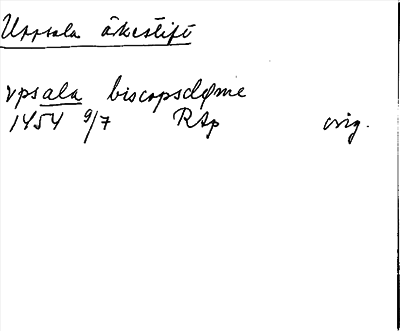 Uppsala ärkestift
vpsala biscopsdøme
1454 9/7 RAp orig.